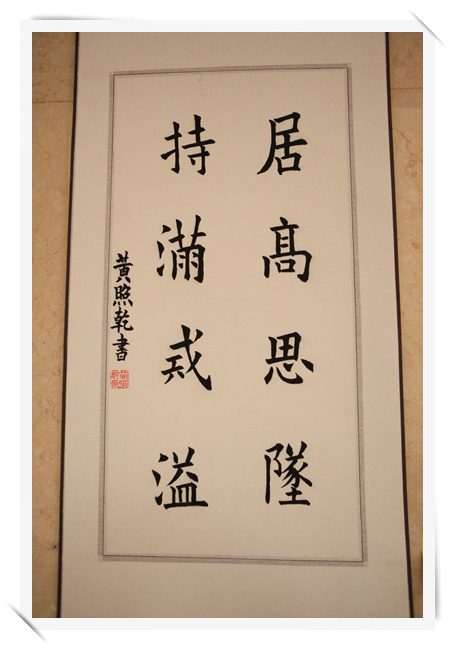 居髙思墜
持滿戒溢
黃照乾書